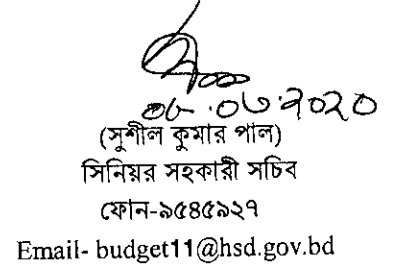 (সুশীল কুমার পাল)
সিনিয়র সহকারী সচিব
ফোন-৯৫৪৫৯২৭
Email- budget11@hsd.gov.bd